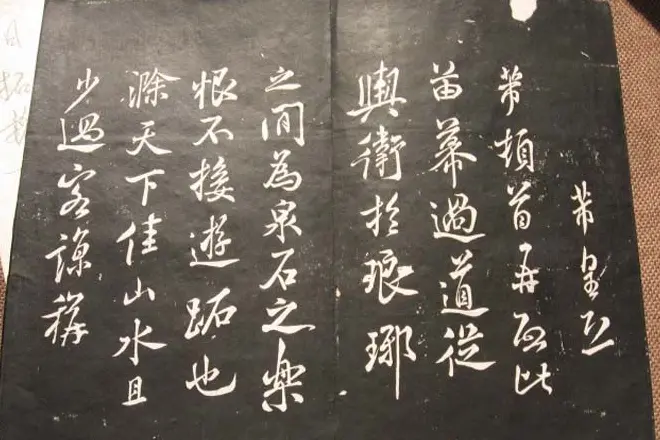 芾皇恐
芾頓首再啟比
苗幕過道從
輿衛於琅琊
之間為泉石之樂
恨不接遊跖也
滁天下佳山水且
少過客諒稱